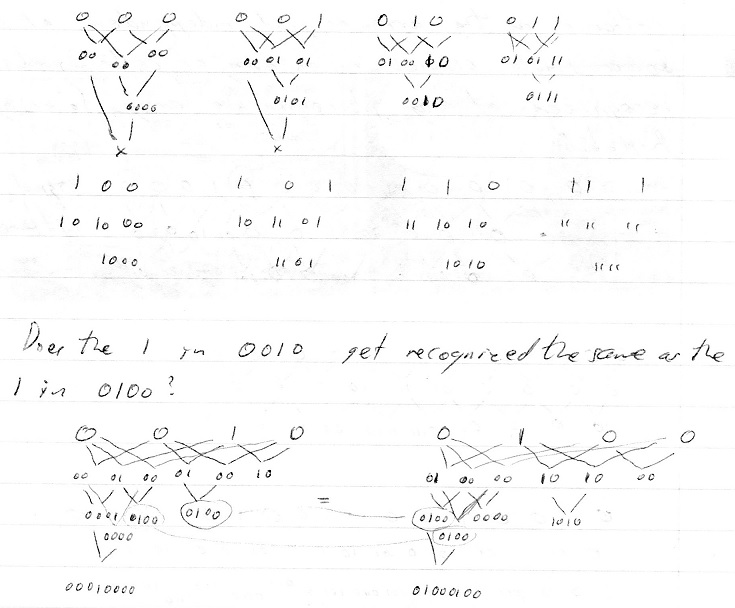 0 0 0 0 0 1 0 1 0 0 1 1
00 00 00 00 01 01 01 00 10 01 01 11
0000 0101 0010 0111
x x
1 0 0 1 0 1 1 1 0 1 1 1
10 10 00 10 11 01 11 10 10 11 11 11
1000 1101 1010 1111
Does the 1 in 0010 get recognized the same as the
1 in 0100?
0 0 1 0 0 1 0 0
00 01 00 01 00 10 01 00 00 10 10 00
0001 0100 0100 = 0100 0000 1010
0000 0100
00010000 01000100